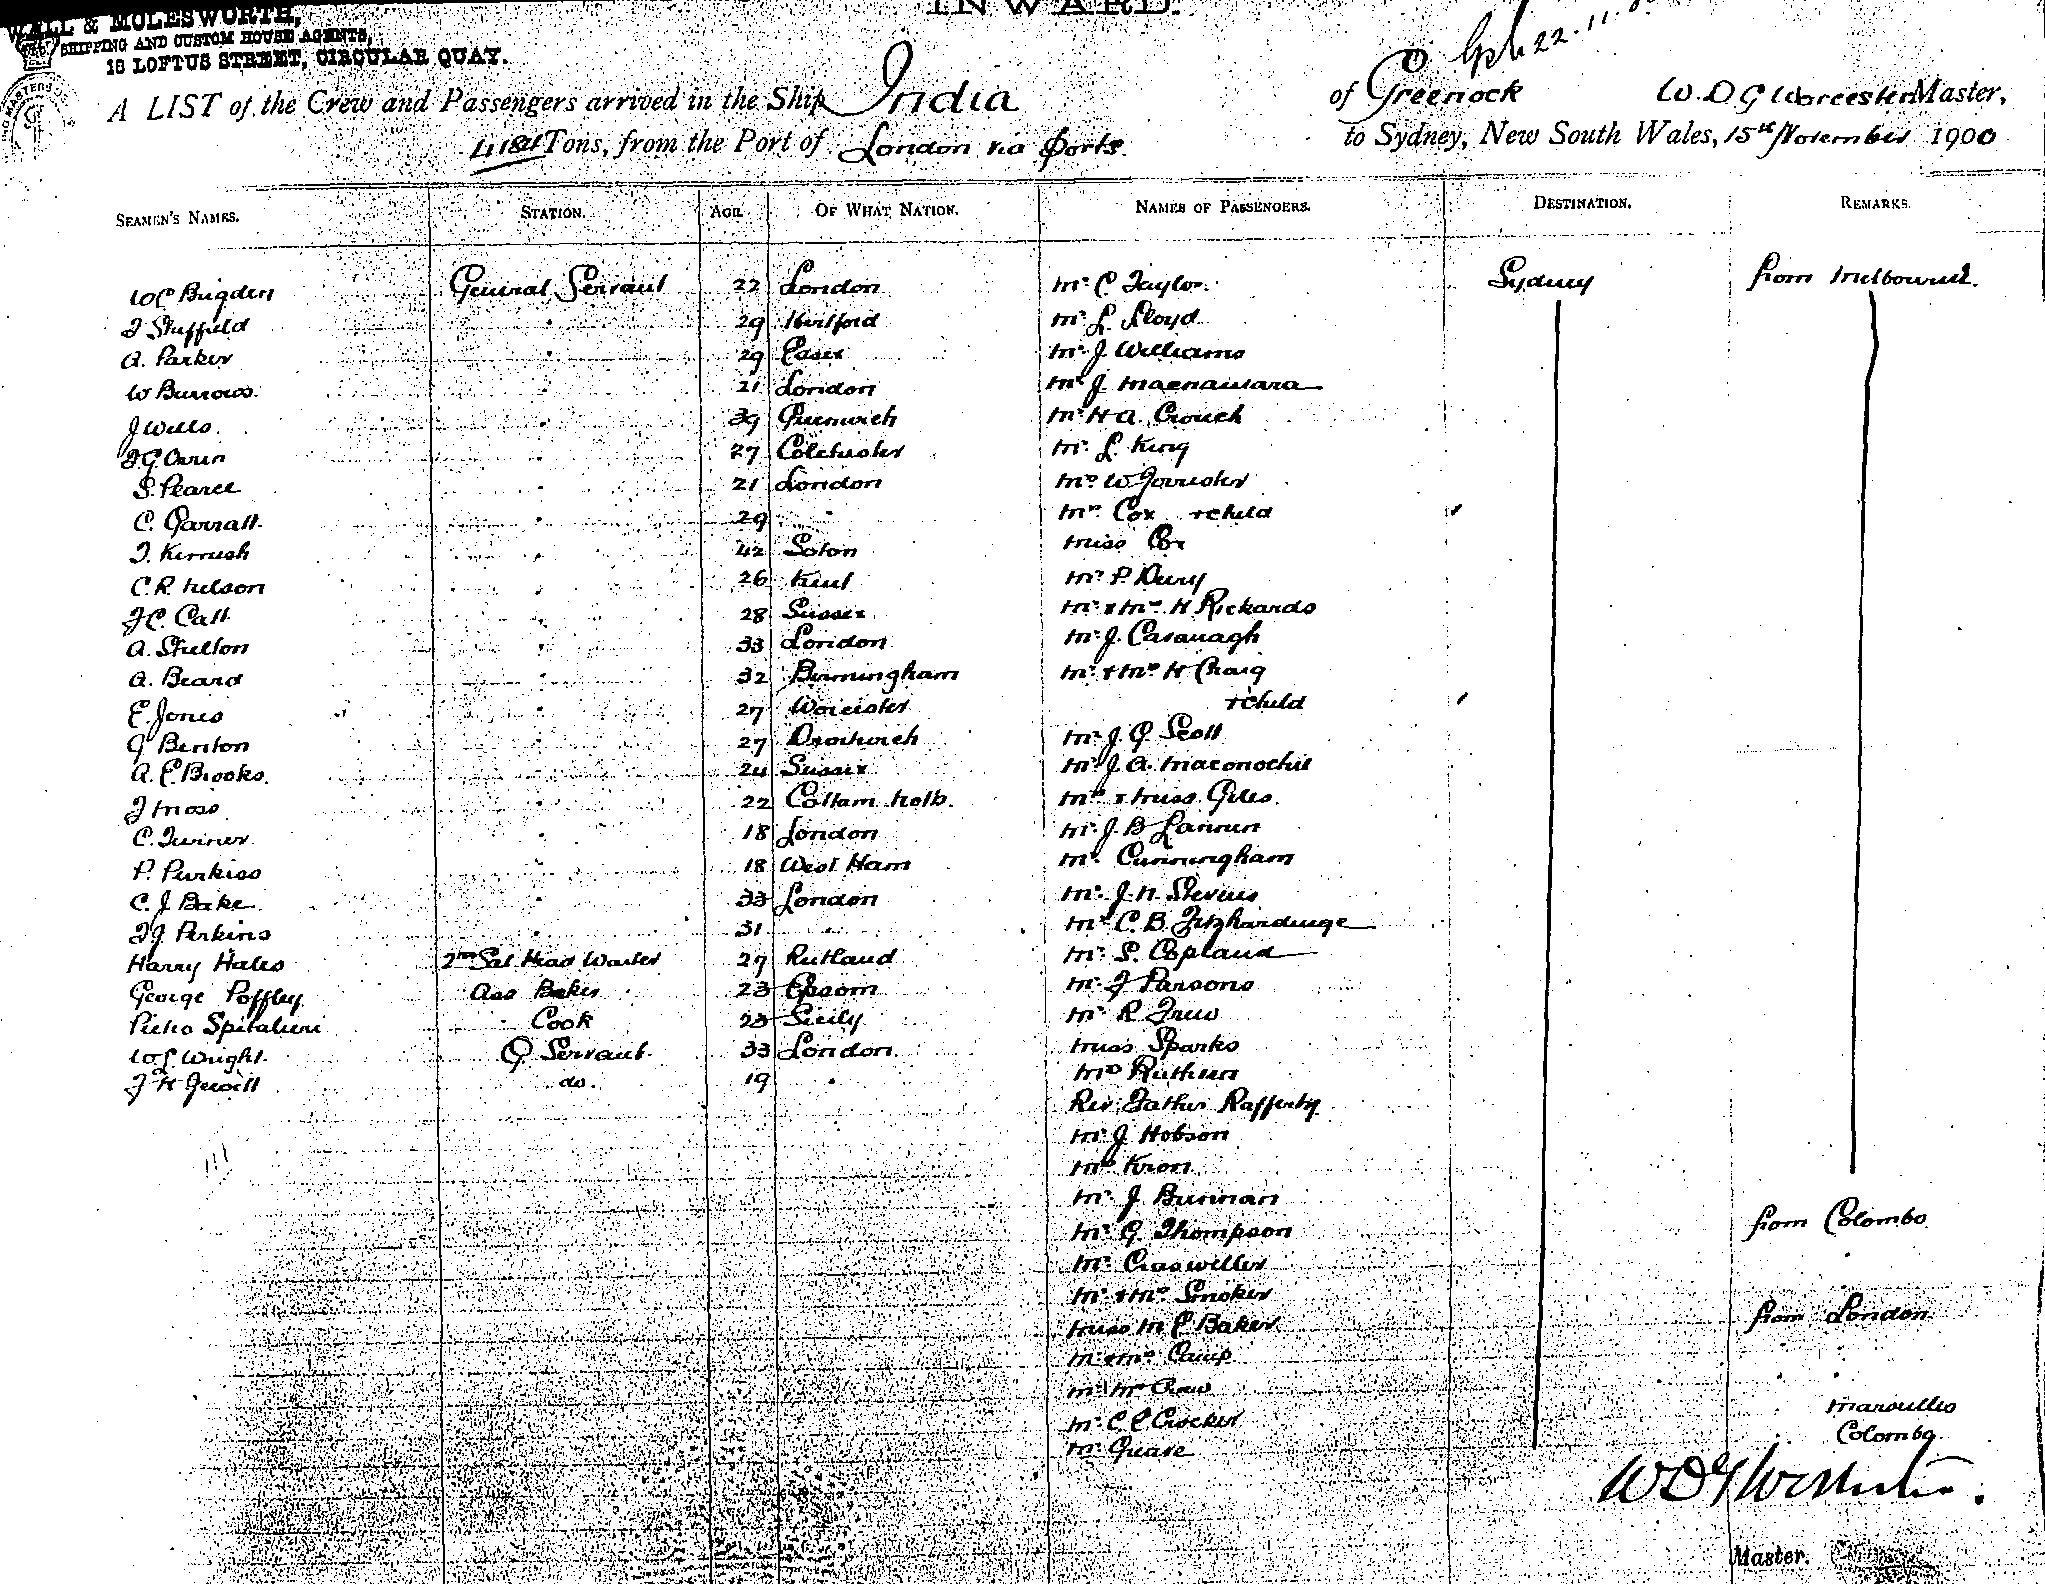 INWARD.
WALL & MOLESWORTH,
SHIPPING AND CUSTOM HOUSE AGENTS,
18 LOFTUS STREET, CIRCULAR QUAY.
22.11.00
A LIST of the Crew and Passengers arrived in the Ship India of Greenock W.D.G Worcester Master,
Tons, from the Port of London via Ports to Sydney, New South Wales, 15th November 1900
SEAMEN'S NAMES. STATION. AGE. OF WHAT NATION. NAMES OF PASSENGERS. DESTINATION. REMARKS.
W C Brigden General Servant 22 London Mr C Taylor. Sydney from Melbourne.
Sheffield " 29 Hertford Mr L Lloyd
A. Parker " 29 Essex Mr J. Williams
W Burrows. " 21 London Mr J. Macnamara
J Wells " 39 Greenwich Mr H A Crouch
" 27 Colchester Mr L King
S. Pearce " 21 London W Forrester
C. Garratt. " 29 " Mrs Cox + child
Kerruish " 42 Soton Miss Cox
C. R. Nelson " 26 Kent Mr P. Dury
C. Catt " 28 Sussex Mr & Mrs H Rickards
A. Skelton " 33 London Mr J. Cavanagh
A. Beard " 32 Birmingham Mr & Mrs H Craig
E. Jones " 27 Worcester + child
G Benton " 27 Droitwich Mr J. G Scott
A. E Brooks. " 24 Sussex Mr J. A. Maconochie
Moss " 22 Cottam Notts. Mrs & Miss Giles
C. Turner " 18 London Mr J. B Lannen
P. Purkiss " 18 West Ham Mr Cunningham
C. J Bake " 33 London Mr J. N Stevens
J. Perkins " 31 " Mr C. B. Fitzhardinge
Harry Hales 2nd Sal Head Waiter 27 Rutland Mr S. Copland
George Poffley Ass Baker 23 Epsom Mr Parsons
Pietro Spitalieri Cook 23 Sicily Mr R Frew
W L Wright. G Servant 33 London Miss Sparks
H Jewell do. 19 " Ruthven
Rev Father Rafferty
Mr J Hobson
Kron
Mr J Burman
Mr G Thompson from Colombo
Mr Crasweller "
Mr & Mrs Smoker
Miss M E Baker from London
Mr & Mrs Camp "
Mr
Mr C E Crocker " Marseilles
Mr Quare " Colombo
W D G Worcester.
Master.